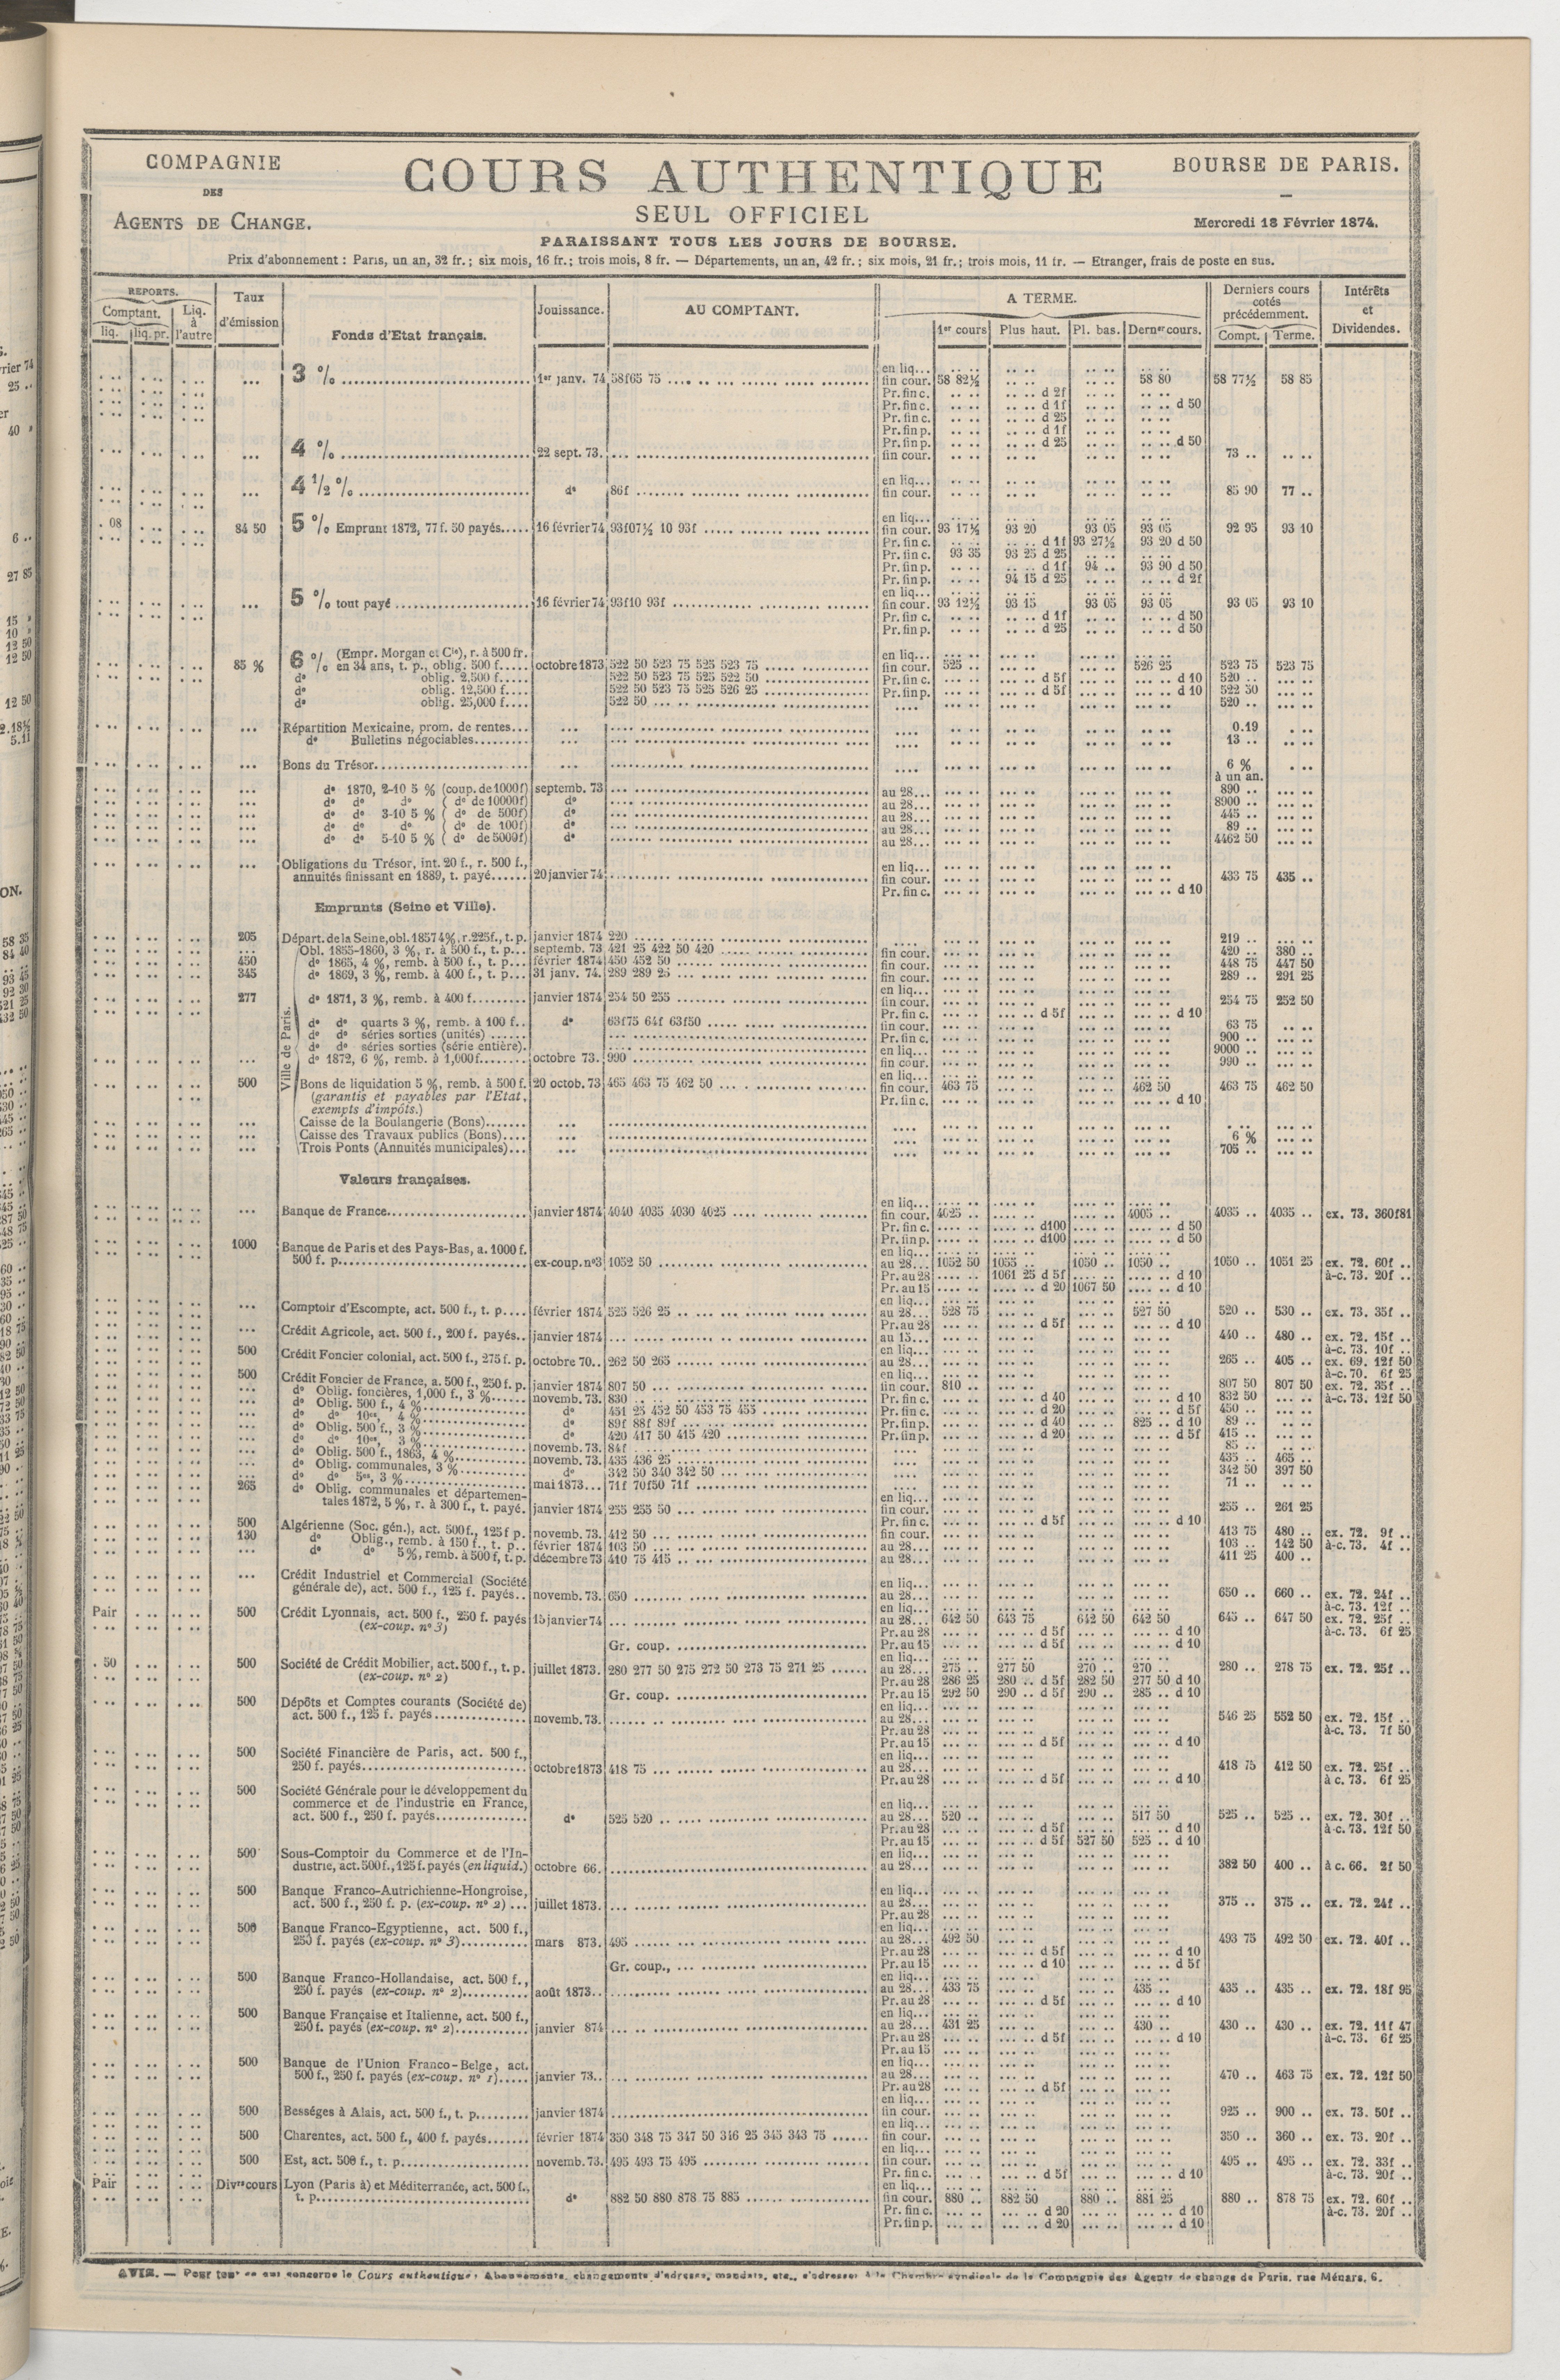 COMPAGNIE
DES
AGENTS DE CHANGE.
COURS AUTHENTIQUE
SEUL OFFICIEL
PARAISSANT TOUS LES JOURS DE BOURSE.
BOURSE DE PARIS.
Mercredi 18 Février 1874.
Prix d'abonnement : Paris, un an, 32 fr.; six mois, 16 fr.; trois mois, 8 fr. — Départements, un an, 42 fr.; six mois, 21 fr.; trois mois, 11 fr. — Etranger, frais de poste en sus.
REPORTS.
Comptant.
liq. liq. pr.
Liq. à l'autre
Taux d'émission
Fonds d'Etat français.
Jouissance.
AU COMPTANT.
A TERME.
1er cours Plus haut. Pl. bas. Derner cours.
Derniers cours cotés précédemment.
Compt. Terme.
Intérêts et Dividendes.
3 % 1er janv. 74 58f65 75 en liq...
fin cour. 58 82½ 58 80 58 77½ 58 85
Pr. fin c. d 2f
Pr. fin c. d 1f d 50
Pr. fin c. d 25
Pr. fin p. d 1f
Pr. fin p. d 25 d 50
4 % 22 sept. 73. fin cour. 73 ..
en liq...
4 1/2 % do 86f fin cour. 85 90 77 ..
en liq...
. 08 84 50 5 % Emprunt 1872, 77 f. 50 payés 16 février 74 93f07½ 10 93f fin cour. 93 17½ 93 20 93 05 93 05 92 95 93 10
Pr. fin c. d 1f 93 27½ 93 20 d 50
Pr. fin c. 93 35 93 25 d 25
Pr. fin p. d 1f 94 .. 93 90 d 50
Pr. fin p. 94 15 d 25 d 2f
en liq...
5 % tout payé 16 février 74 93f10 93f fin cour. 93 12½ 93 15 93 05 93 05 93 05 93 10
Pr. fin c. d 1f d 50
Pr. fin p. d 25 d 50
6 % (Empr. Morgan et Cie), r. à 500 fr. en liq...
85 % en 34 ans, t. p., oblig. 500 f. octobre 1873 522 50 523 75 525 523 75 fin cour. 525 .. 526 25 523 75 523 75
do oblig. 2,500 f. 522 50 523 75 525 522 50 Pr. fin c. d 5f d 10 520 ..
do oblig. 12,500 f. 522 50 523 75 525 526 25 Pr. fin p. d 5f d 10 522 50
do oblig. 25,000 f. 522 50 520 ..
Répartition Mexicaine, prom. de rentes 0.19
do Bulletins négociables 13 ..
Bons du Trésor 6 % à un an.
do 1870, 2-10 5 % (coup. de 1000f) septemb. 73 au 28... 890 ..
do do do (do de 10000f) do au 28... 8900 ..
do do 3-10 5 % (do de 500f) do au 28... 445 ..
do do do (do de 100f) do au 28... 89 ..
do do 5-10 5 % (do de 5000f) do au 28... 4462 50
Obligations du Trésor, int. 20 f., r. 500 f., en liq...
annuités finissant en 1889, t. payé 20 janvier 74 fin cour. 433 75 435 ..
Pr. fin c. d 10
Emprunts (Seine et Ville).
205 Départ. de la Seine, obl. 1857 4%, r. 225f., t. p. janvier 1874 220 219 ..
Ville de Paris.
Obl. 1855-1860, 3 %, r. à 500 f., t. p. septemb. 73 421 25 422 50 420 fin cour. 420 .. 380 ..
450 do 1865, 4 %, remb. à 500 f., t. p. février 1874 450 452 50 fin cour. 448 75 447 50
345 do 1869, 3 %, remb. à 400 f., t. p. 31 janv. 74. 289 289 25 fin cour. 289 .. 291 25
en liq...
277 do 1871, 3 %, remb. à 400 f. janvier 1874 254 50 255 fin cour. 254 75 252 50
Pr. fin c. d 5f d 10
do do quarts 3 %, remb. à 100 f. do 63f75 64f 63f50 fin cour. 63 75
do do séries sorties (unités) Pr. fin c. 900 ..
do do séries sorties (série entière). en liq... 9000 ..
do 1872, 6 %, remb. à 1,000f. octobre 73. 990 fin cour. 990 ..
en liq...
500 Bons de liquidation 5 %, remb. à 500 f. 20 octob. 73 465 463 75 462 50 fin cour. 463 75 462 50 463 75 462 50
(garantis et payables par l'Etat, Pr. fin c. d 10
exempts d'impôts.)
Caisse de la Boulangerie (Bons)
Caisse des Travaux publics (Bons) 6 %
Trois Ponts (Annuités municipales) 705 ..
Valeurs françaises.
en liq...
Banque de France janvier 1874 4040 4035 4030 4025 fin cour. 4025 .. 4005 .. 4035 .. 4035 .. ex. 73. 360f81
Pr. fin c. d100 d 50
Pr. fin p. d100 d 50
1000 Banque de Paris et des Pays-Bas, a. 1000 f. en liq...
500 f. p. ex-coup. no3 1052 50 au 28... 1052 50 1055 .. 1050 .. 1050 .. 1050 .. 1051 25 ex. 72. 60f ..
Pr. au 28 1061 25 d 5f d 10 à-c. 73. 20f ..
Pr. au 15 d 20 1067 50 d 10
en liq...
Comptoir d'Escompte, act. 500 f., t. p. février 1874 525 526 25 au 28... 528 75 527 50 520 .. 530 .. ex. 73. 35f ..
Pr. au 28 d 5f d 10
Crédit Agricole, act. 500 f., 200 f. payés janvier 1874 au 15... 440 .. 480 .. ex. 72. 15f ..
en liq... à-c. 73. 10f ..
500 Crédit Foncier colonial, act. 500 f., 275 f. p. octobre 70.. 262 50 265 au 28... 265 .. 405 .. ex. 69. 12f 50
en liq... à-c. 70. 6f 25
500 Crédit Foncier de France, a. 500 f., 250 f. p. janvier 1874 807 50 fin cour. 810 .. 807 50 807 50 ex. 72. 35f ..
do Oblig. foncières, 1,000 f., 3 % novemb. 73. 830 Pr. fin c. d 40 d 10 832 50 à-c. 73. 12f 50
do Oblig. 500 f., 4 % do 451 25 452 50 453 75 455 Pr. fin c. d 20 d 5f 450 ..
do do 10es, 4 % do 89f 88f 89f Pr. fin p. d 40 825 .. d 10 89 ..
do Oblig. 500 f., 3 % do 420 417 50 415 420 Pr. fin p. d 20 d 5f 415 ..
do do 10es, 3 % novemb. 73. 84f 85 ..
do Oblig. 500 f., 1863, 4 % novemb. 73. 435 436 25 435 .. 465 ..
do Oblig. communales, 3 % do 342 50 340 342 50 342 50 397 50
do do 5es, 3 % mai 1873 71f 70f50 71f 71 ..
265 do Oblig. communales et départemen- en liq...
tales 1872, 5 %, r. à 300 f., t. payé. janvier 1874 255 255 50 fin cour. 255 .. 261 25
Pr. fin c. d 5f d 10
500 Algérienne (Soc. gén.), act. 500f., 125f p. novemb. 73. 412 50 fin cour. 413 75 480 .. ex. 72. 9f ..
130 do Oblig., remb. à 150 f., t. p. février 1874 103 50 au 28... 103 .. 142 50 à-c. 73. 4f ..
do do 5%, remb. à 500 f, t. p. décembre 73 410 75 415 au 28... 411 25 400 ..
Crédit Industriel et Commercial (Société en liq...
générale de), act. 500 f., 125 f. payés novemb. 73. 650 au 28... 650 .. 660 .. ex. 72. 24f ..
en liq... à-c. 73. 12f ..
Pair 500 Crédit Lyonnais, act. 500 f., 250 f. payés 15 janvier 74 au 28... 642 50 643 75 642 50 642 50 645 .. 647 50 ex. 72. 25f ..
(ex-coup. no 3) Pr. au 28 d 5f d 10 à-c. 73. 6f 25
Gr. coup. Pr. au 15 d 5f d 10
en liq...
. 50 500 Société de Crédit Mobilier, act. 500 f., t. p. juillet 1873. 280 277 50 275 272 50 273 75 271 25 au 28... 275 .. 277 50 270 .. 270 .. 280 .. 278 75 ex. 72. 25f ..
(ex-coup. no 2) Pr. au 28 286 25 280 .. d 5f 282 50 277 50 d 10
Gr. coup. Pr. au 15 292 50 290 .. d 5f 290 .. 285 .. d 10
500 Dépôts et Comptes courants (Société de) en liq...
act. 500 f., 125 f. payés novemb. 73. au 28... 546 25 552 50 ex. 72. 15f ..
Pr. au 28 à-c. 73. 7f 50
Pr. au 15 d 5f d 10
500 Société Financière de Paris, act. 500 f., en liq...
250 f. payés octobre 1873 418 75 au 28... 418 75 412 50 ex. 72. 25f ..
Pr. au 28 d 5f d 10 à c. 73. 6f 25
500 Société Générale pour le développement du
commerce et de l'industrie en France, en liq...
act. 500 f., 250 f. payés do 525 520 au 28... 520 .. 517 50 525 .. 525 .. ex. 72. 30f ..
Pr. au 28 d 5f d 10 à-c. 73. 12f 50
Pr. au 15 d 5f 527 50 525 .. d 10
500 Sous-Comptoir du Commerce et de l'In- en liq...
dustrie, act. 500 f., 125 f. payés (en liquid.) octobre 66. au 28... 382 50 400 .. à c. 66. 2f 50
500 Banque Franco-Autrichienne-Hongroise, en liq...
act. 500 f., 250 f. p. (ex-coup. no 2) juillet 1873. au 28... 375 .. 375 .. ex. 72. 24f ..
Pr. au 28
500 Banque Franco-Egyptienne, act. 500 f., en liq...
250 f. payés (ex-coup. no 3) mars 873. 495 au 28... 492 50 493 75 492 50 ex. 72. 40f ..
Pr. au 28 d 5f d 10
Gr. coup., Pr. au 15 d 10 d 5f
500 Banque Franco-Hollandaise, act. 500 f., en liq...
250 f. payés (ex-coup. no 2) août 1873.. au 28... 433 75 435 .. 435 .. 435 .. ex. 72. 18f 95
Pr. au 28 d 5f d 10
500 Banque Française et Italienne, act. 500 f., en liq...
250 f. payés (ex-coup. no 2) janvier 874 au 28... 431 25 430 .. 430 .. 430 .. ex. 72. 11f 47
Pr. au 28 d 5f d 10 à-c. 73. 6f 25
Pr. au 15
500 Banque de l'Union Franco-Belge, act. en liq...
500 f., 250 f. payés (ex-coup. no 1) janvier 73.. au 28... 470 .. 463 75 ex. 72. 12f 50
Pr. au 28 d 5f
en liq...
500 Bességes à Alais, act. 500 f., t. p. janvier 1874 fin cour. 925 .. 900 .. ex. 73. 50f ..
en liq...
500 Charentes, act. 500 f., 400 f. payés février 1874 350 348 75 347 50 346 25 345 343 75 fin cour. 350 .. 360 .. ex. 73. 20f ..
en liq...
500 Est, act. 500 f., t. p. novemb. 73. 495 493 75 495 fin cour. 495 .. 495 .. ex. 72. 33f ..
Pr. fin c. d 5f d 10 à-c. 73. 20f ..
Pair Divers cours Lyon (Paris à) et Méditerranée, act. 500 f., en liq...
t. p. do 882 50 880 878 75 885 fin cour. 880 .. 882 50 880 .. 881 25 880 .. 878 75 ex. 72. 60f ..
Pr. fin c. d 20 d 10 à-c. 73. 20f ..
Pr. fin p. d 20 d 10
AVIS. — Pour tout ce qui concerne le Cours authentique, Abonnements, changements d'adresse, mandats, etc., s'adresser à la Chambre syndicale de la Compagnie des Agents de change de Paris, rue Ménars, 6.